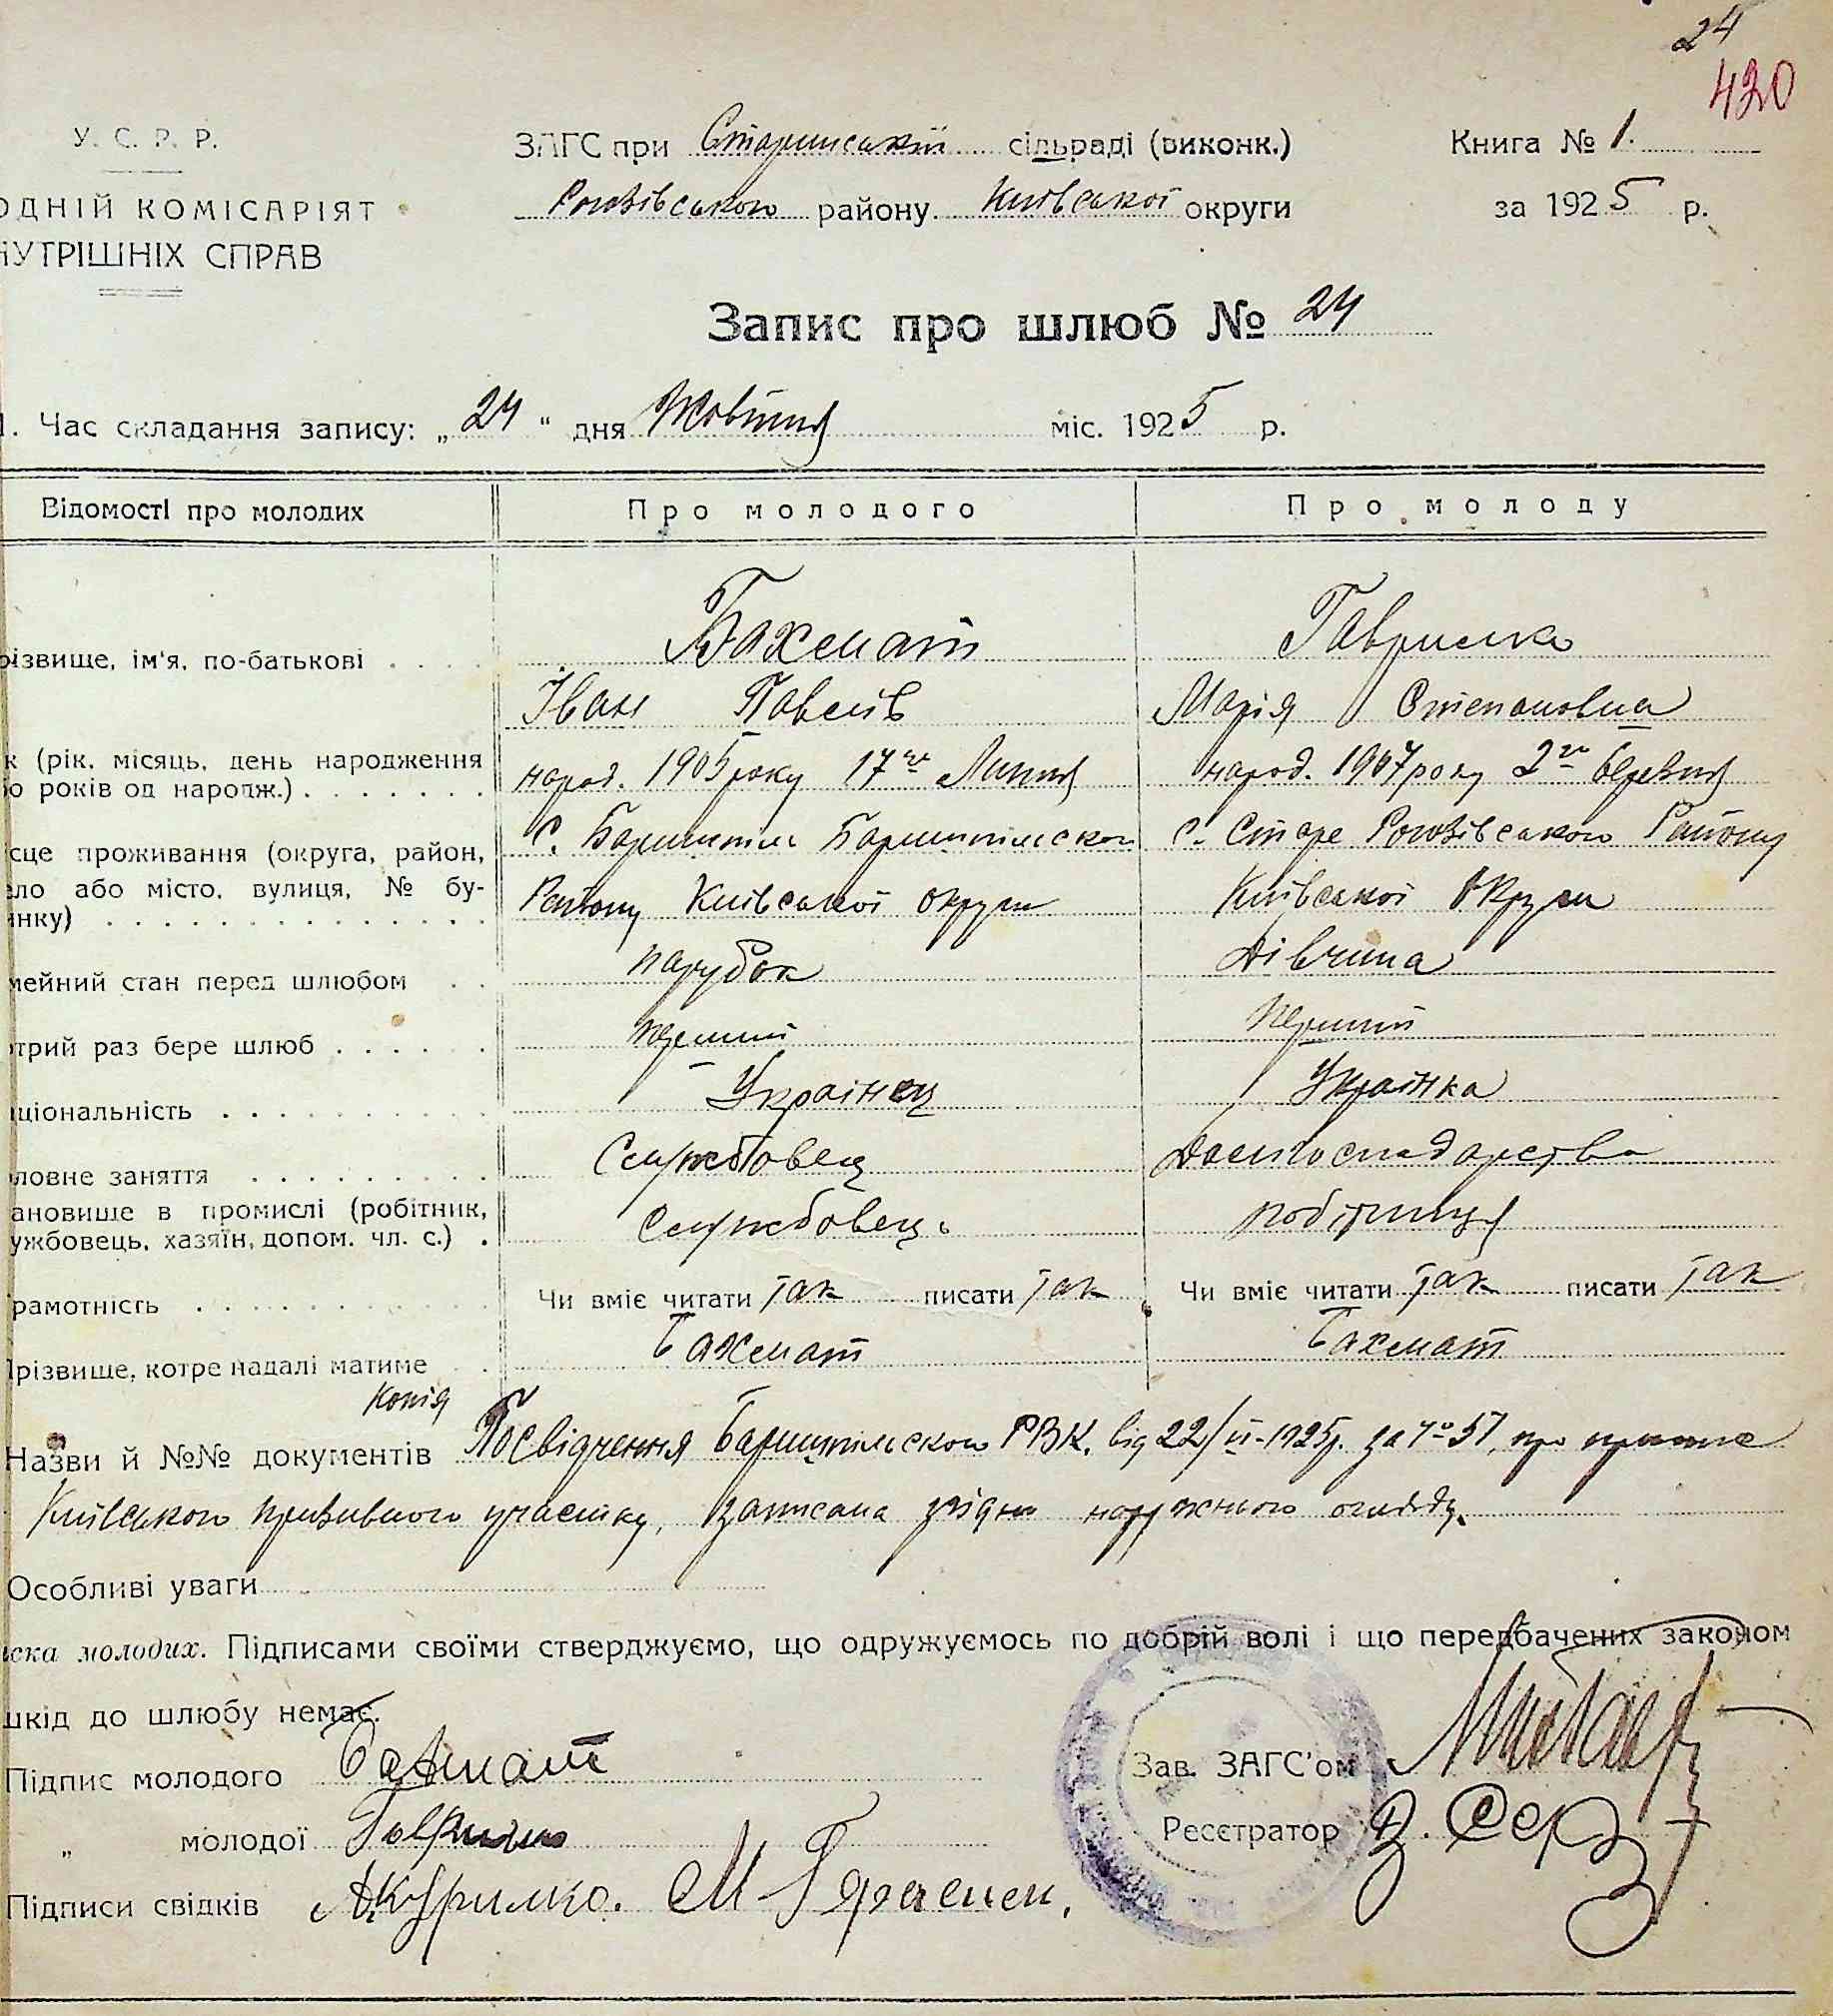 24
420
У. С. Р. Р.
ЗАГС при Старинській сільраді (виконк.)
Книга № 1.
ОДНІЙ КОМІСАРІЯТ
Рогозівського району Київської округи
за 1925 р.
НУТРІШНІХ СПРАВ
Запис про шлюб № 24
1. Час складання запису: „24“ дня Жовтня міс. 1925 р.
Відомості про молодих
Про молодого
Про молоду
різвище, ім'я, по-батькові
Бахмат
Гаврилко
Іван Павлів
Марія Степановна
к (рік, місяць, день народження
о років од народж.)
народ. 1905 року 17го Липня
народ. 1907 року 2го березня
сце проживання (округа, район,
ло або місто, вулиця, № бу-
инку)
С. Баришпіль Баришпільског
С. Старе Рогозівського Району
Району Київської округи
Київської округи
мейний стан перед шлюбом
парубок
дівчина
отрий раз бере шлюб
перший
перший
ціональність
Українец
Українка
ловне заняття
Службовец
ановище в промислі (робітник,
ужбовець, хазяїн, допом. чл. с.)
Службовець
робітниця
рамотність
Чи вміє читати так писати так
Чи вміє читати так писати так
Прізвище, котре надалі матиме
Бахмат
Бахмат
Копія
Назви й №№ документів Посвідчення Баришпільского РВК. від 22/VI-1925р. за № 51, про
Київського призивного участку, записана згідно наружнього огляду.
Особливі уваги
иска молодих. Підписами своїми стверджуємо, що одружуємось по добрій волі і що передбачених законом
шкід до шлюбу немає.
Підпис молодого Бахмат
Зав. ЗАГС'ом
„ молодої Гаврилко
Реєстратор
Підписи свідків